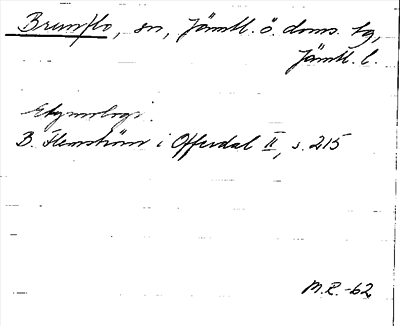 Brunflo, sn, Jämtl. ö. doms. tg,
Jämtl. l.
Etymologi.
B. Flemström i Offerdal II, s. 215
M.R. -62